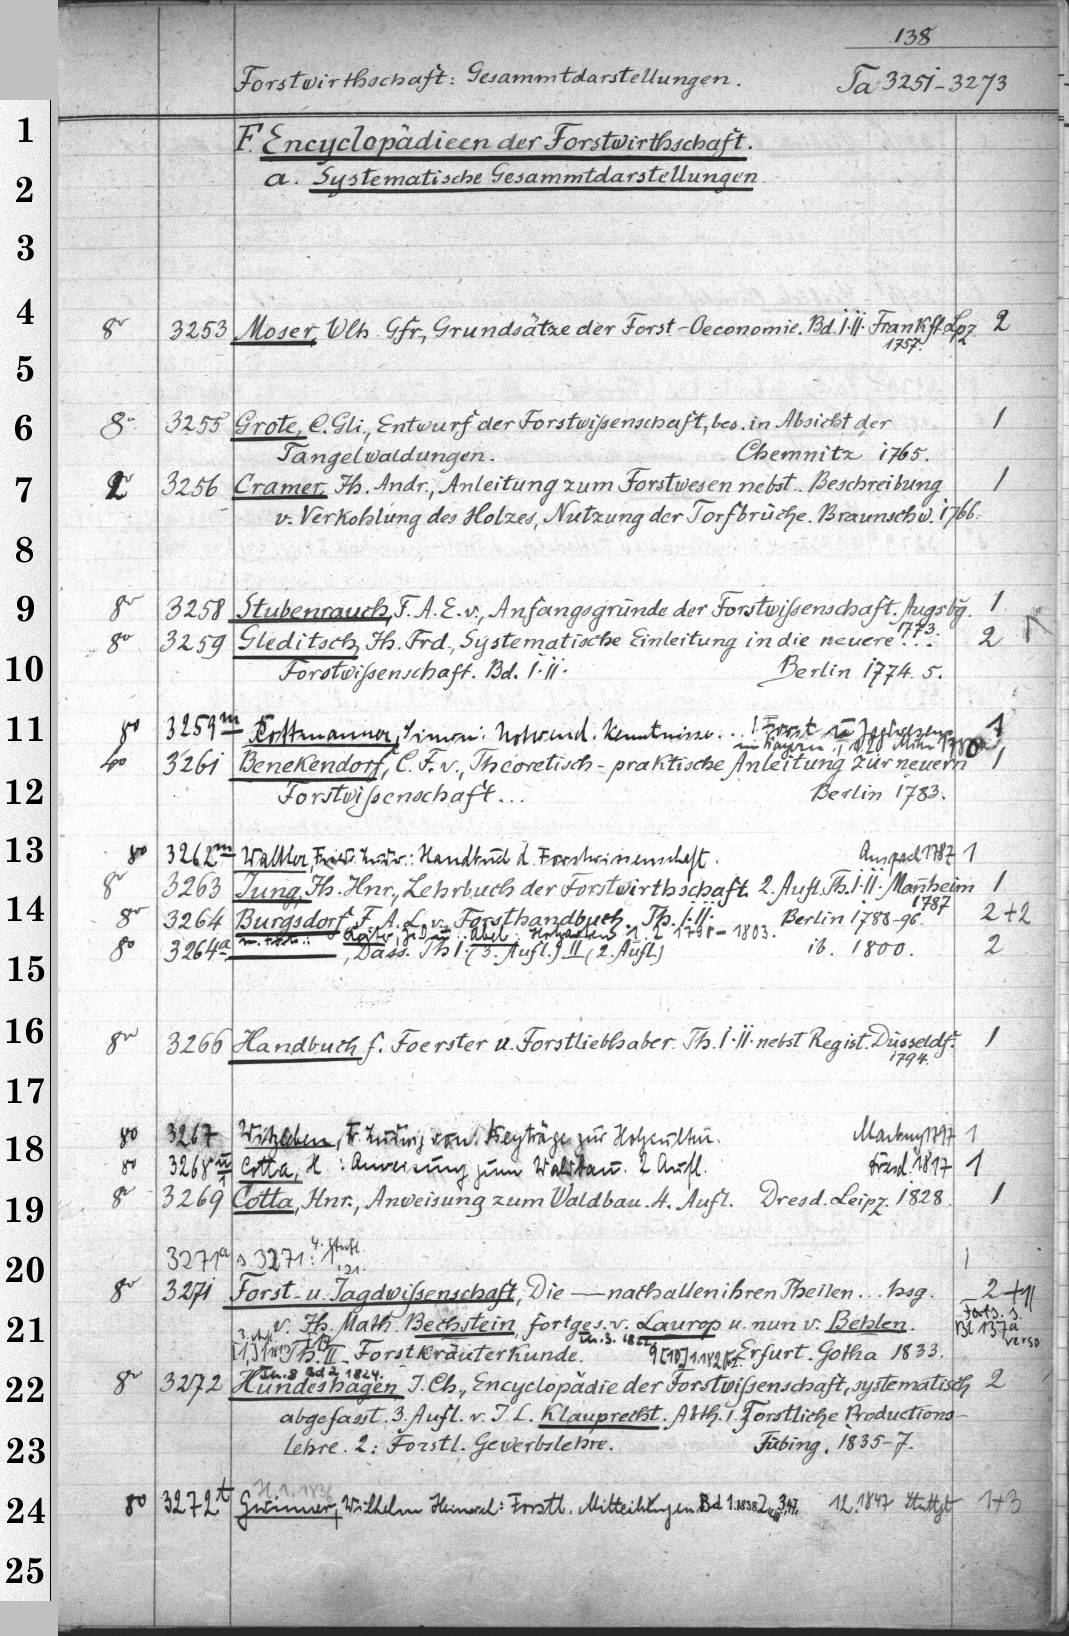 138
Forstwirthschaft: Gesammtdarstellungen. Ta 3251-3273
1
F. Encyclopädieen der Forstwirthschaft.
2
a. Systematische Gesammtdarstellungen
3
4
8° 3253 Moser, Wlh. Gfr., Grundsätze der Forst-Oeconomie. Bd. I.II. Frankft. Lpz. 2
1757.
5
6
8° 3255 Grote, C. Gli., Entwurf der Forstwißenschaft, bes. in Absicht der 1
Tangelwaldungen. Chemnitz 1765.
7
2 3256 Cramer, Jh. Andr., Anleitung zum Forstwesen nebst Beschreibung 1
v. Verkohlung des Holzes, Nutzung der Torfbrüche. Braunschw. 1766.
8
9
8° 3258 Stubenrauch, F. A. E. v., Anfangsgründe der Forstwißenschaft. Augsbg. 1
1773.
8° 3259 Gleditsch, Jh. Frd., Systematische Einleitung in die neuere ... 2
10
Forstwißenschaft. Bd. I.II. Berlin 1774. 5.
11
8° 3259m Rottmanner, Simon: Nothwend. Kenntnisse... Forst Jagdwesens 1
in Bayern
4° 3261 Benekendorf, C. F. v., Theoretisch-praktische Anleitung zur neuern 1
12
Forstwißenschaft... Berlin 1783.
13
8° 3262m Walther, Fried. Ludw.: Handbuch d. Forstwissenschaft. Anspach 1787 1
8° 3263 Jung, Jh. Hnr., Lehrbuch der Forstwirthschaft. 2. Aufl. Th. I.II. Manheim 1
1787
14
8° 3264 Burgsdorf, F. A. L. v., Forsthandbuch. Th. I.II. Berlin 1788-96. 2+2
8° 3264a , Dass. Th I. (3. Aufl.) II (2. Aufl) ib. 1800. 2
15
16
8° 3266 Handbuch f. Foerster u. Forstliebhaber. Th. I.II. nebst Regist. Düsseldf. 1
1794.
17
18
8° 3267 Witzleben, F. Ludwig von. Beyträge zur Holzcultur. Marburg 1797 1
8° 3268 Cotta, H.: Anweisung zum Waldbau. 2 Aufl. Dresd. 1817 1
19
8° 3269 Cotta, Hnr., Anweisung zum Waldbau. 4. Aufl. Dresd. Leipz. 1828. 1
20
3271a s. 3271: 4. Aufl. 1
8° 3271 Forst- u. Jagdwißenschaft, Die — nach allen ihren Theilen... hsg. 2+11
21
v. Jh. Math. Bechstein, fortges. v. Laurop u. nun v. Behlen. Forts. s. Bl 137a verso
Th. II Forstkräuterkunde. Erfurt. Gotha 1833.
Th. 8 Bd 2, 1824.
22
8° 3272 Hundeshagen J. Ch., Encyclopädie der Forstwißenschaft, systematisch 2
abgefasst. 3. Aufl. v. J. L. Klauprecht. Abth. 1. Forstliche Productions-
23
lehre. 2: Forstl. Gewerbslehre. Tübing. 1835-7.
H. 1. 1836
24
8° 3272t Gwinner, Wilhelm Heinrich: Forstl. Mittheilungen Bd 1. 12. 1847 Stuttgt 1+3
25